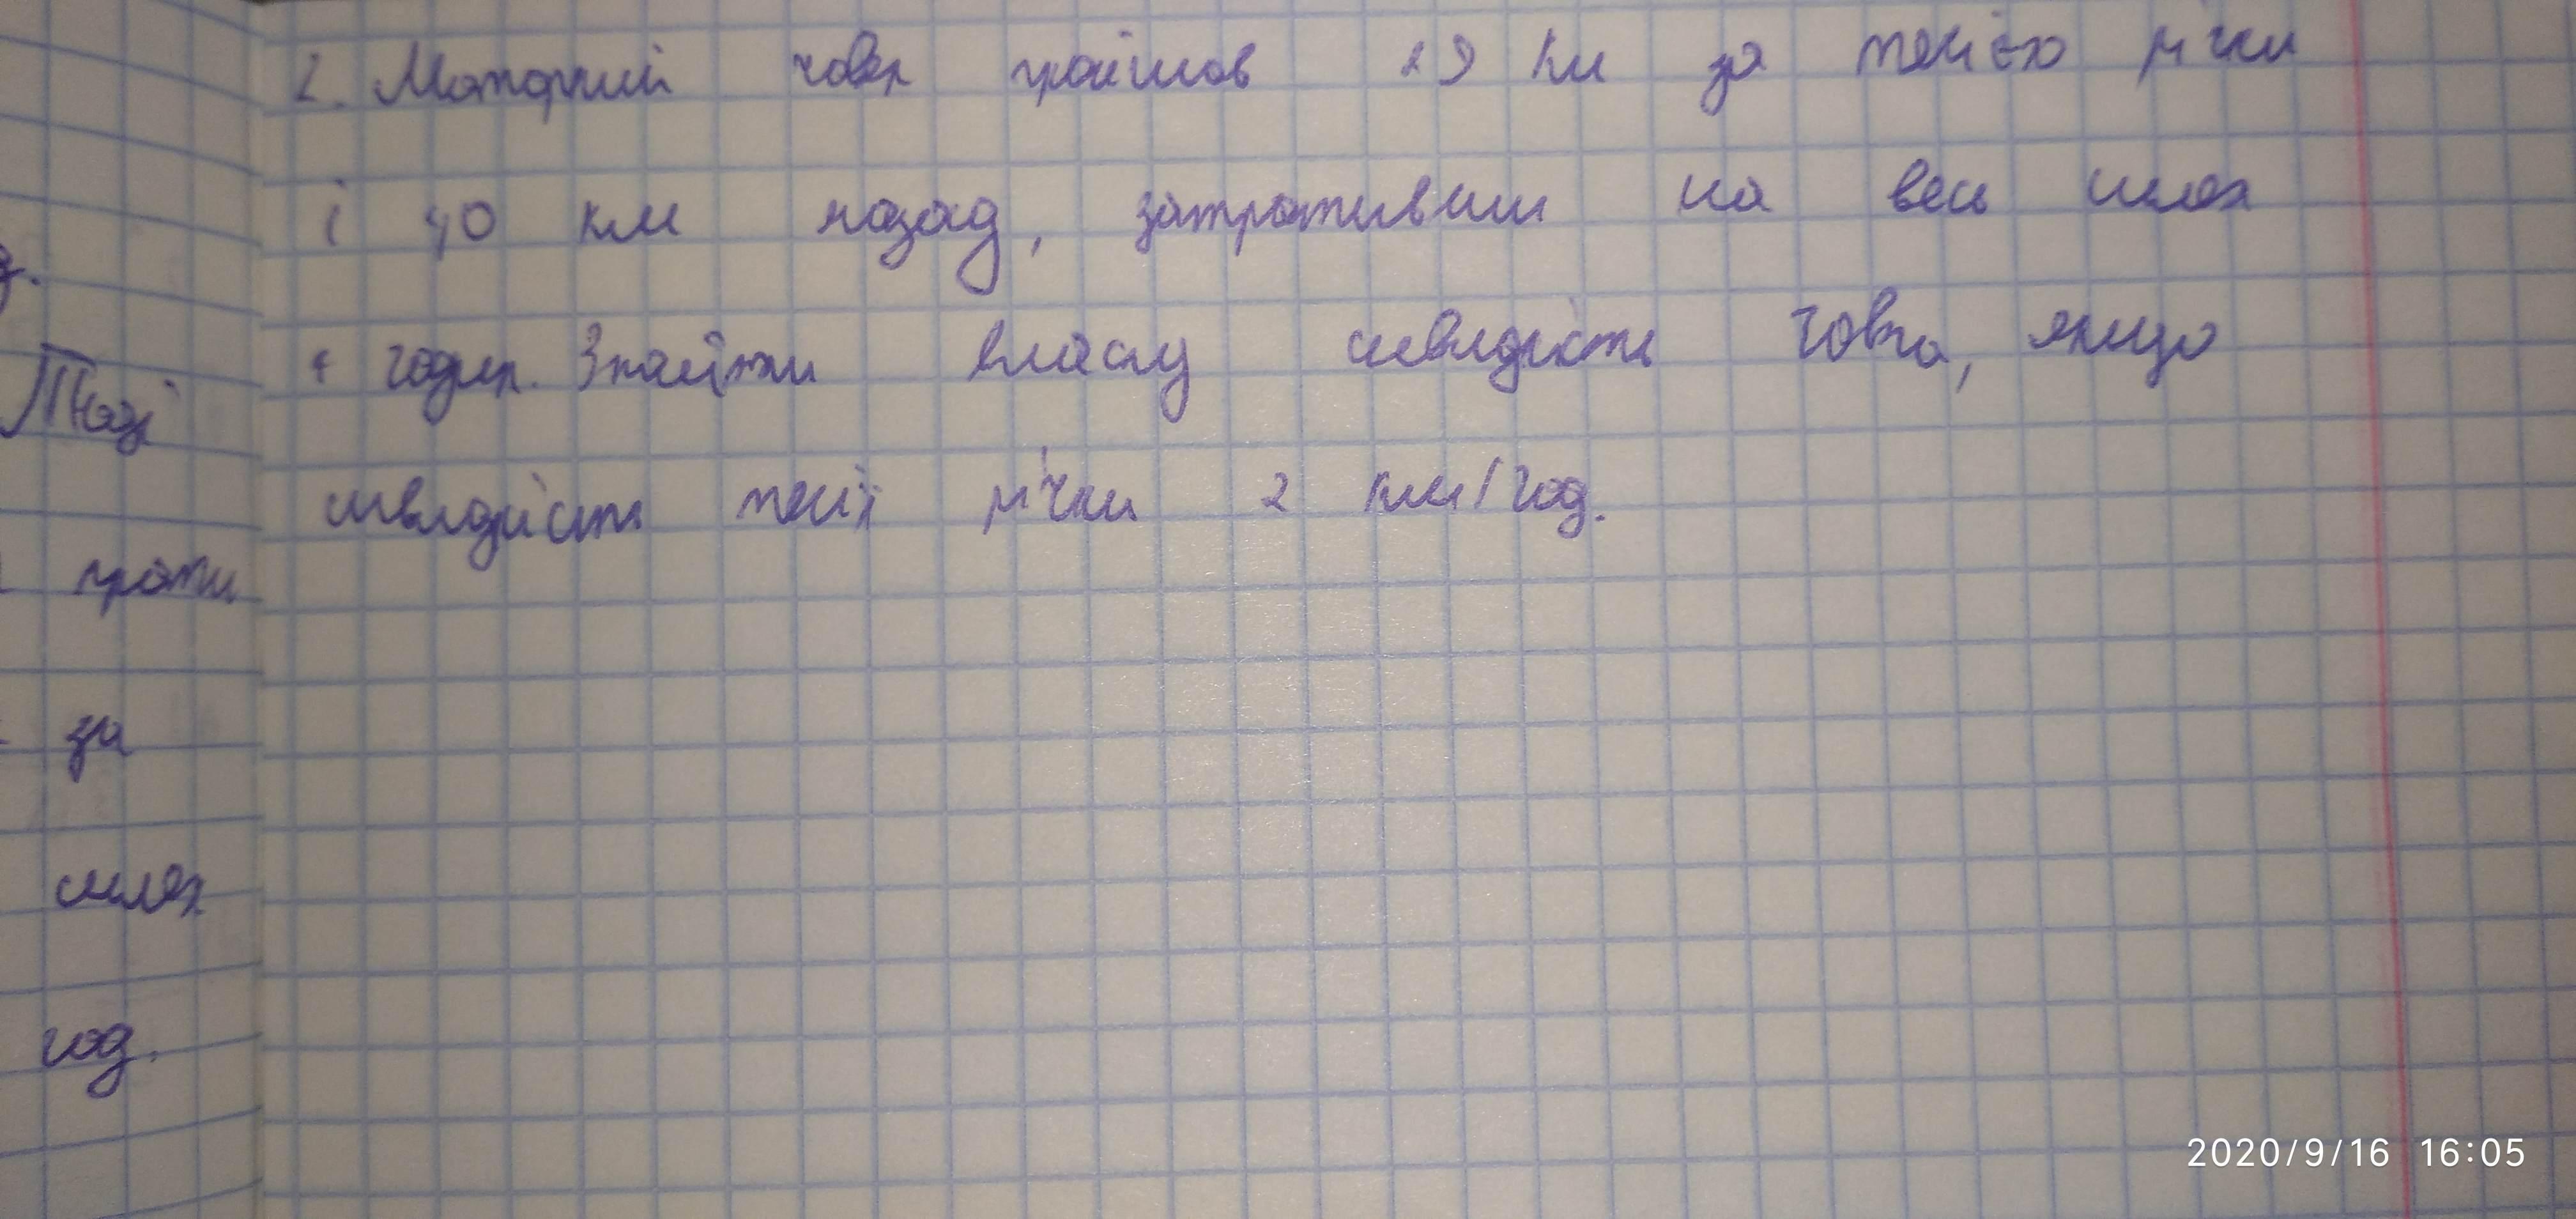 2. Моторний човен пройшов 29 км за течією річки
і 40 км назад, затративши на весь шлях
годин. Знайти власну швидкість човна, якщо
швидкість течії річки 2 км/год.
Тюді
проти
за
шлях
год.
2020/9/16 16:05